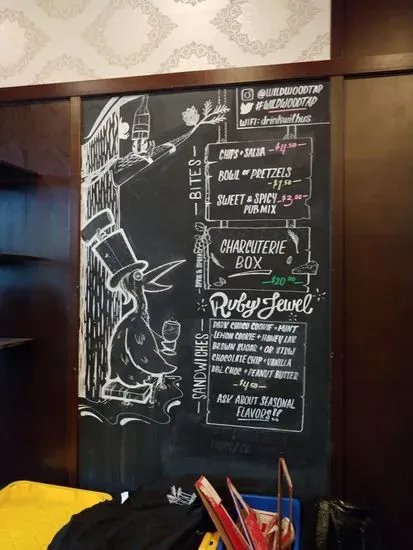 @WILDWOODTAP
#WILDWOODTAP
WIFI: drinkwithus
BITES
CHIPS + SALSA -$4.50-
BOWL OF PRETZELS
-$1.50-
SWEET & SPICY -$3.00-
PUB MIX
CHARCUTERIE
BOX
-$20.00-
Ruby Jewel
SANDWICHES
DARK CHOCO COOKIE + MINT
LEMON COOKIE + HONEY LAV
BROWN SUGAR + OR. STRW
CHOCOLATE CHIP + VANILLA
DBL CHOC + PEANUT BUTTER
-$4.50-
ASK ABOUT SEASONAL
FLAVORS!!